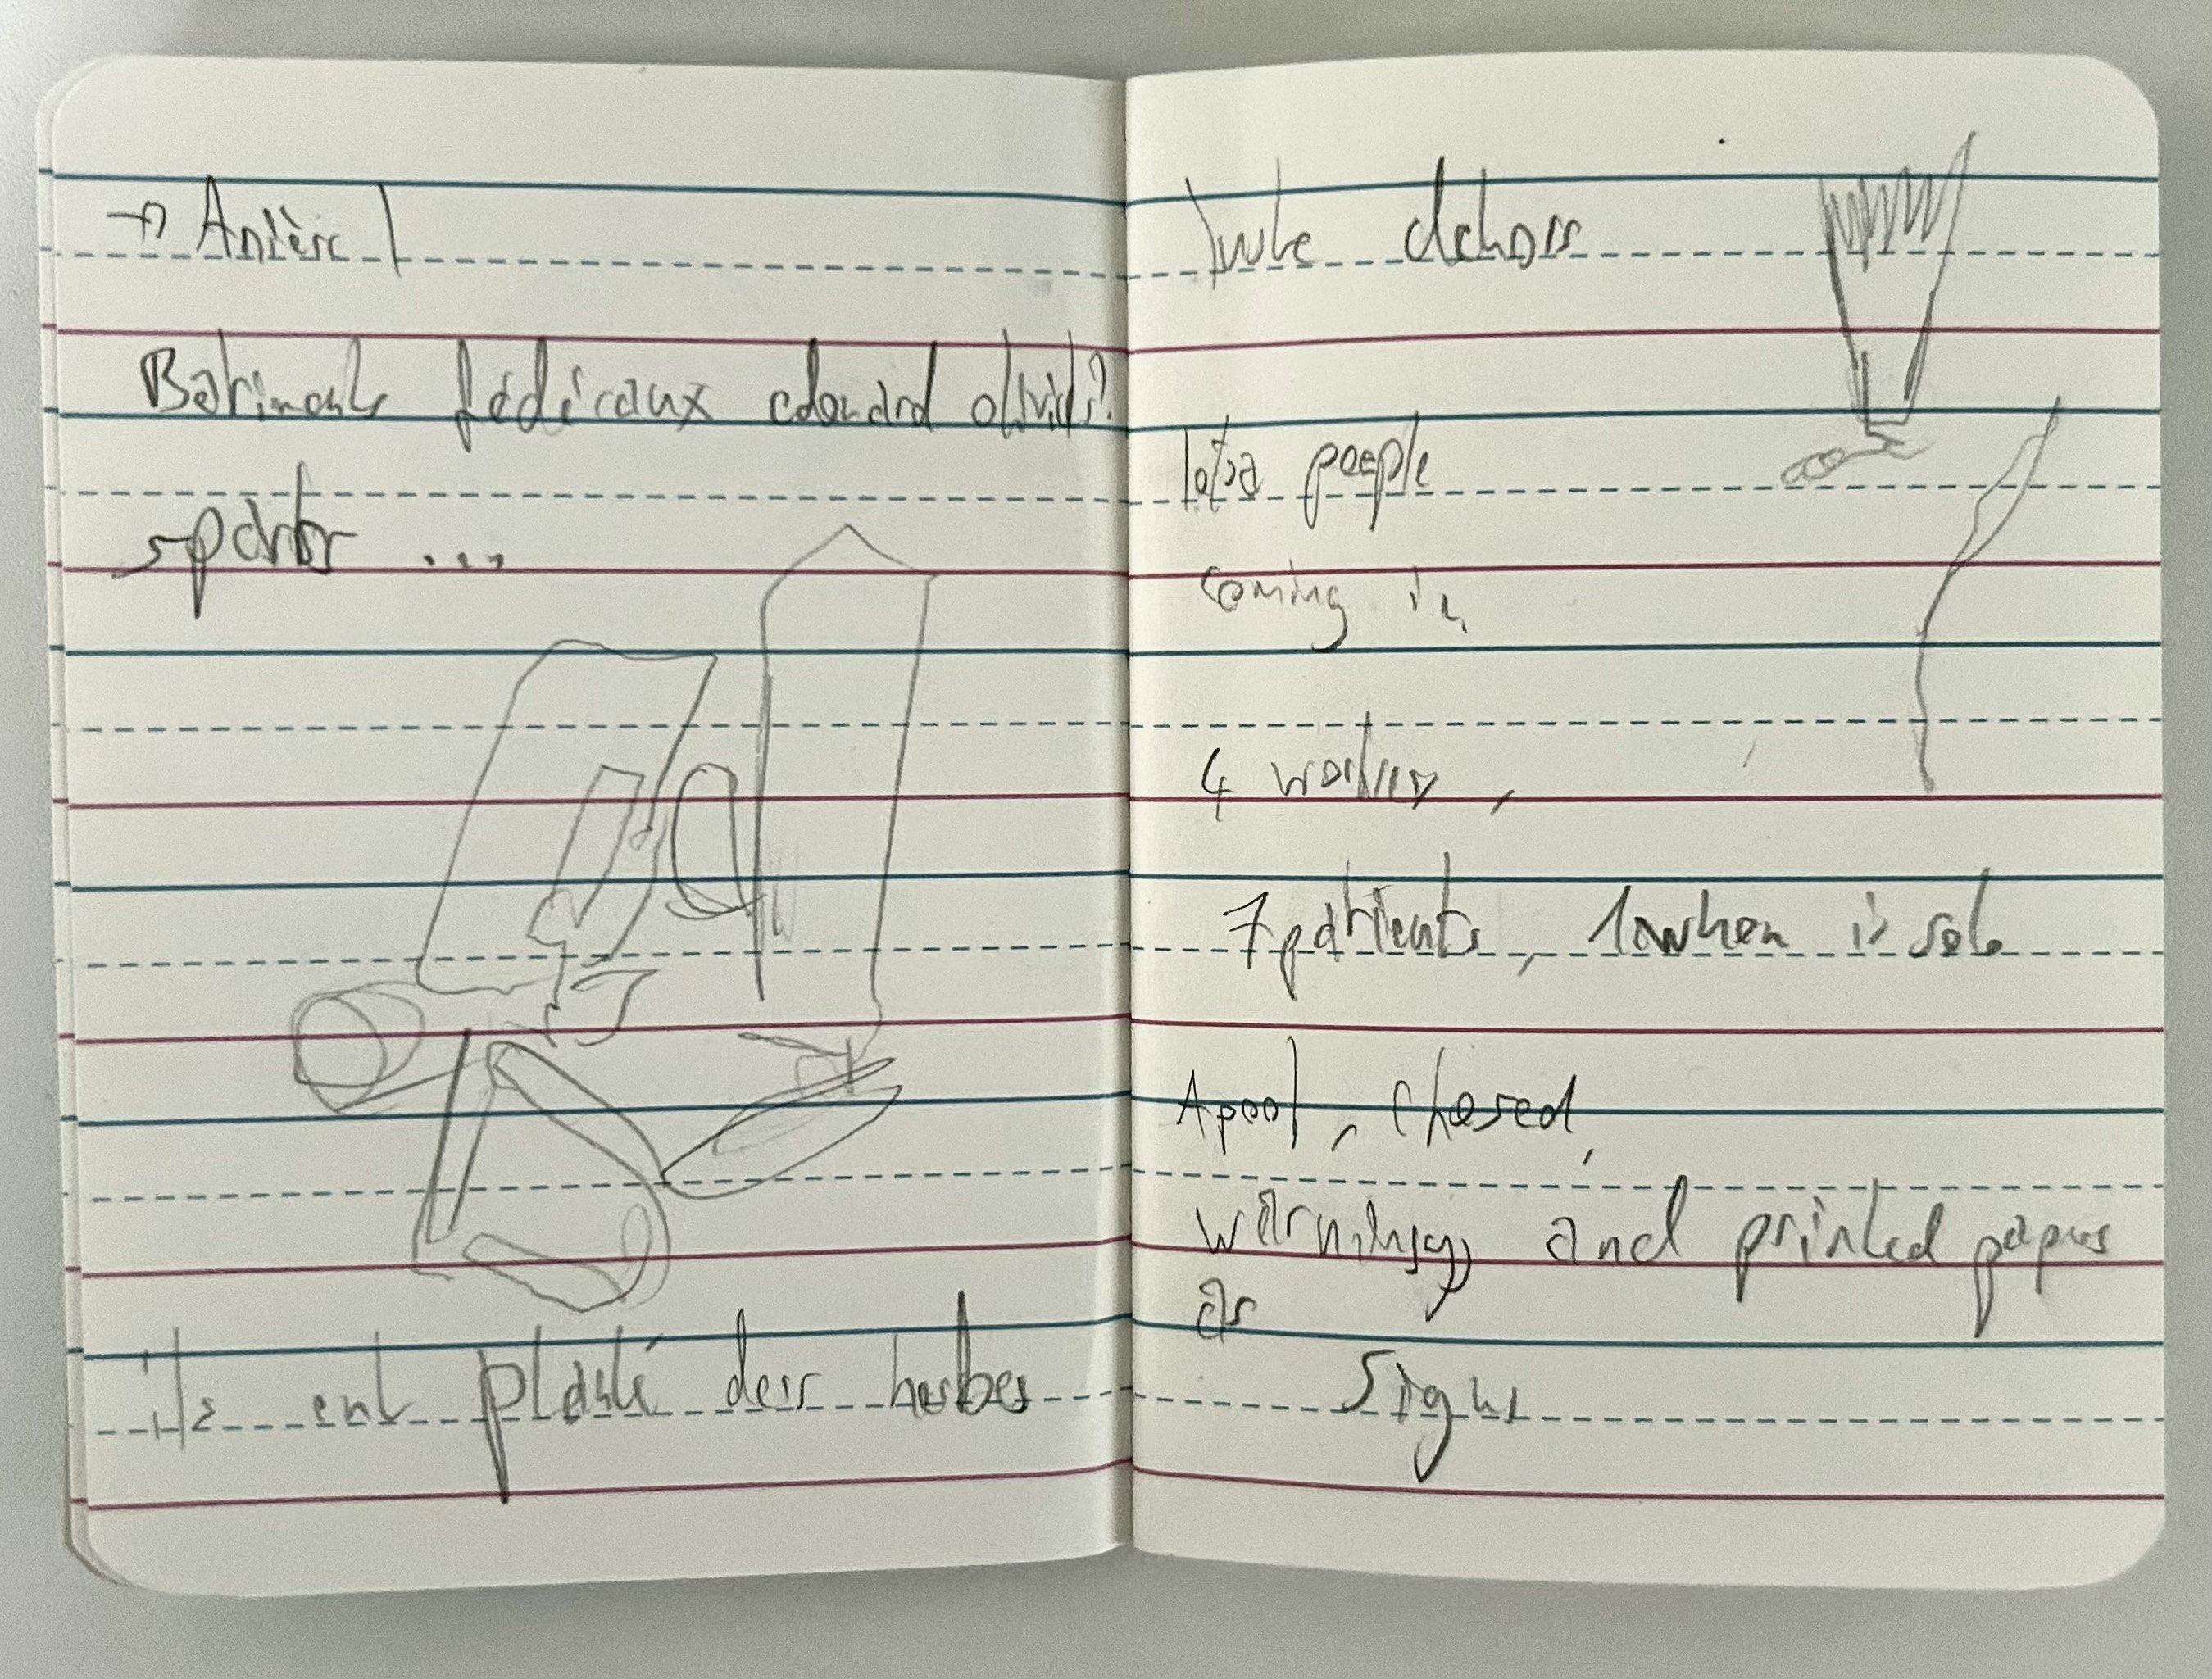 → Anièse !
Batiments fédéraux edouard olivids?
→ parts ...
ils ont planté derr herbes
dehors
lotsa people
coming in
4 workers,
7 patients, 1 when is sole
A pool, closed,
warnings, and printed papers
as
signs